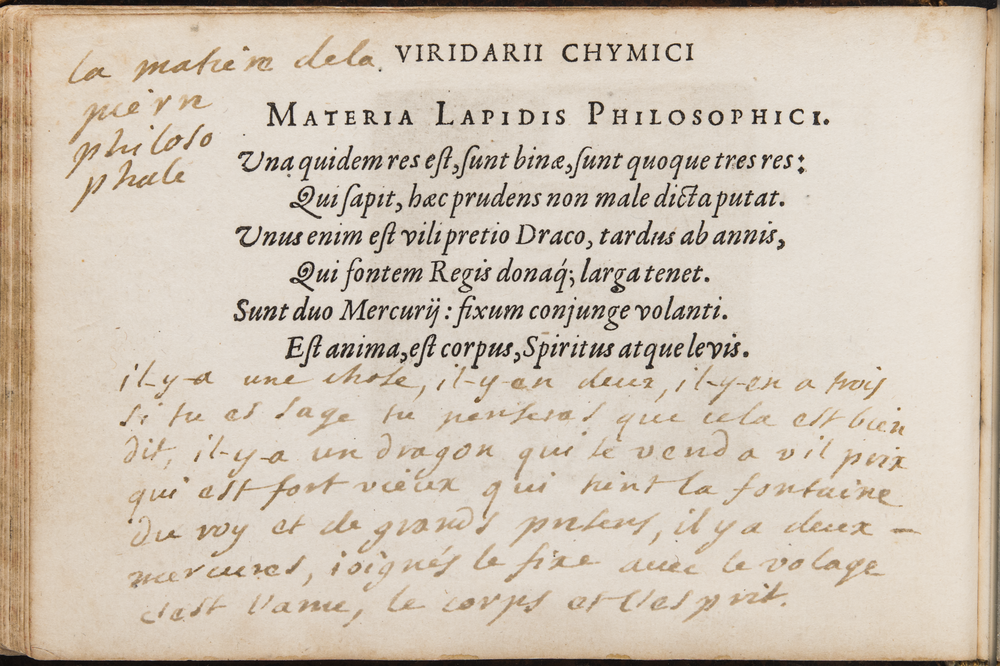 VIRIDARII CHYMICI
la matiere dela
pierre
philoso
phale
MATERIA LAPIDIS PHILOSOPHICI.
Una quidem res est, sunt binæ, sunt quoque tres res:
Qui sapit, hæc prudens non male dicta putat.
Unus enim est vili pretio Draco, tardus ab annis,
Qui fontem Regis donaq́; larga tenet.
Sunt duo Mercurij: fixum conjunge volanti.
Est anima, est corpus, Spiritus atque levis.
il-y-a une chose, il-y-en deux, il-y-en a trois
si tu es sage tu penseras que cela est bien
dit, il-y-a un dragon qui se vend a vil prix
qui est fort vieux qui tient la fontaine
du roy et de grands presens, il y a deux -
mercures, ioignés le fixe avec le volage
c'est l'ame, le corps et l'esprit.